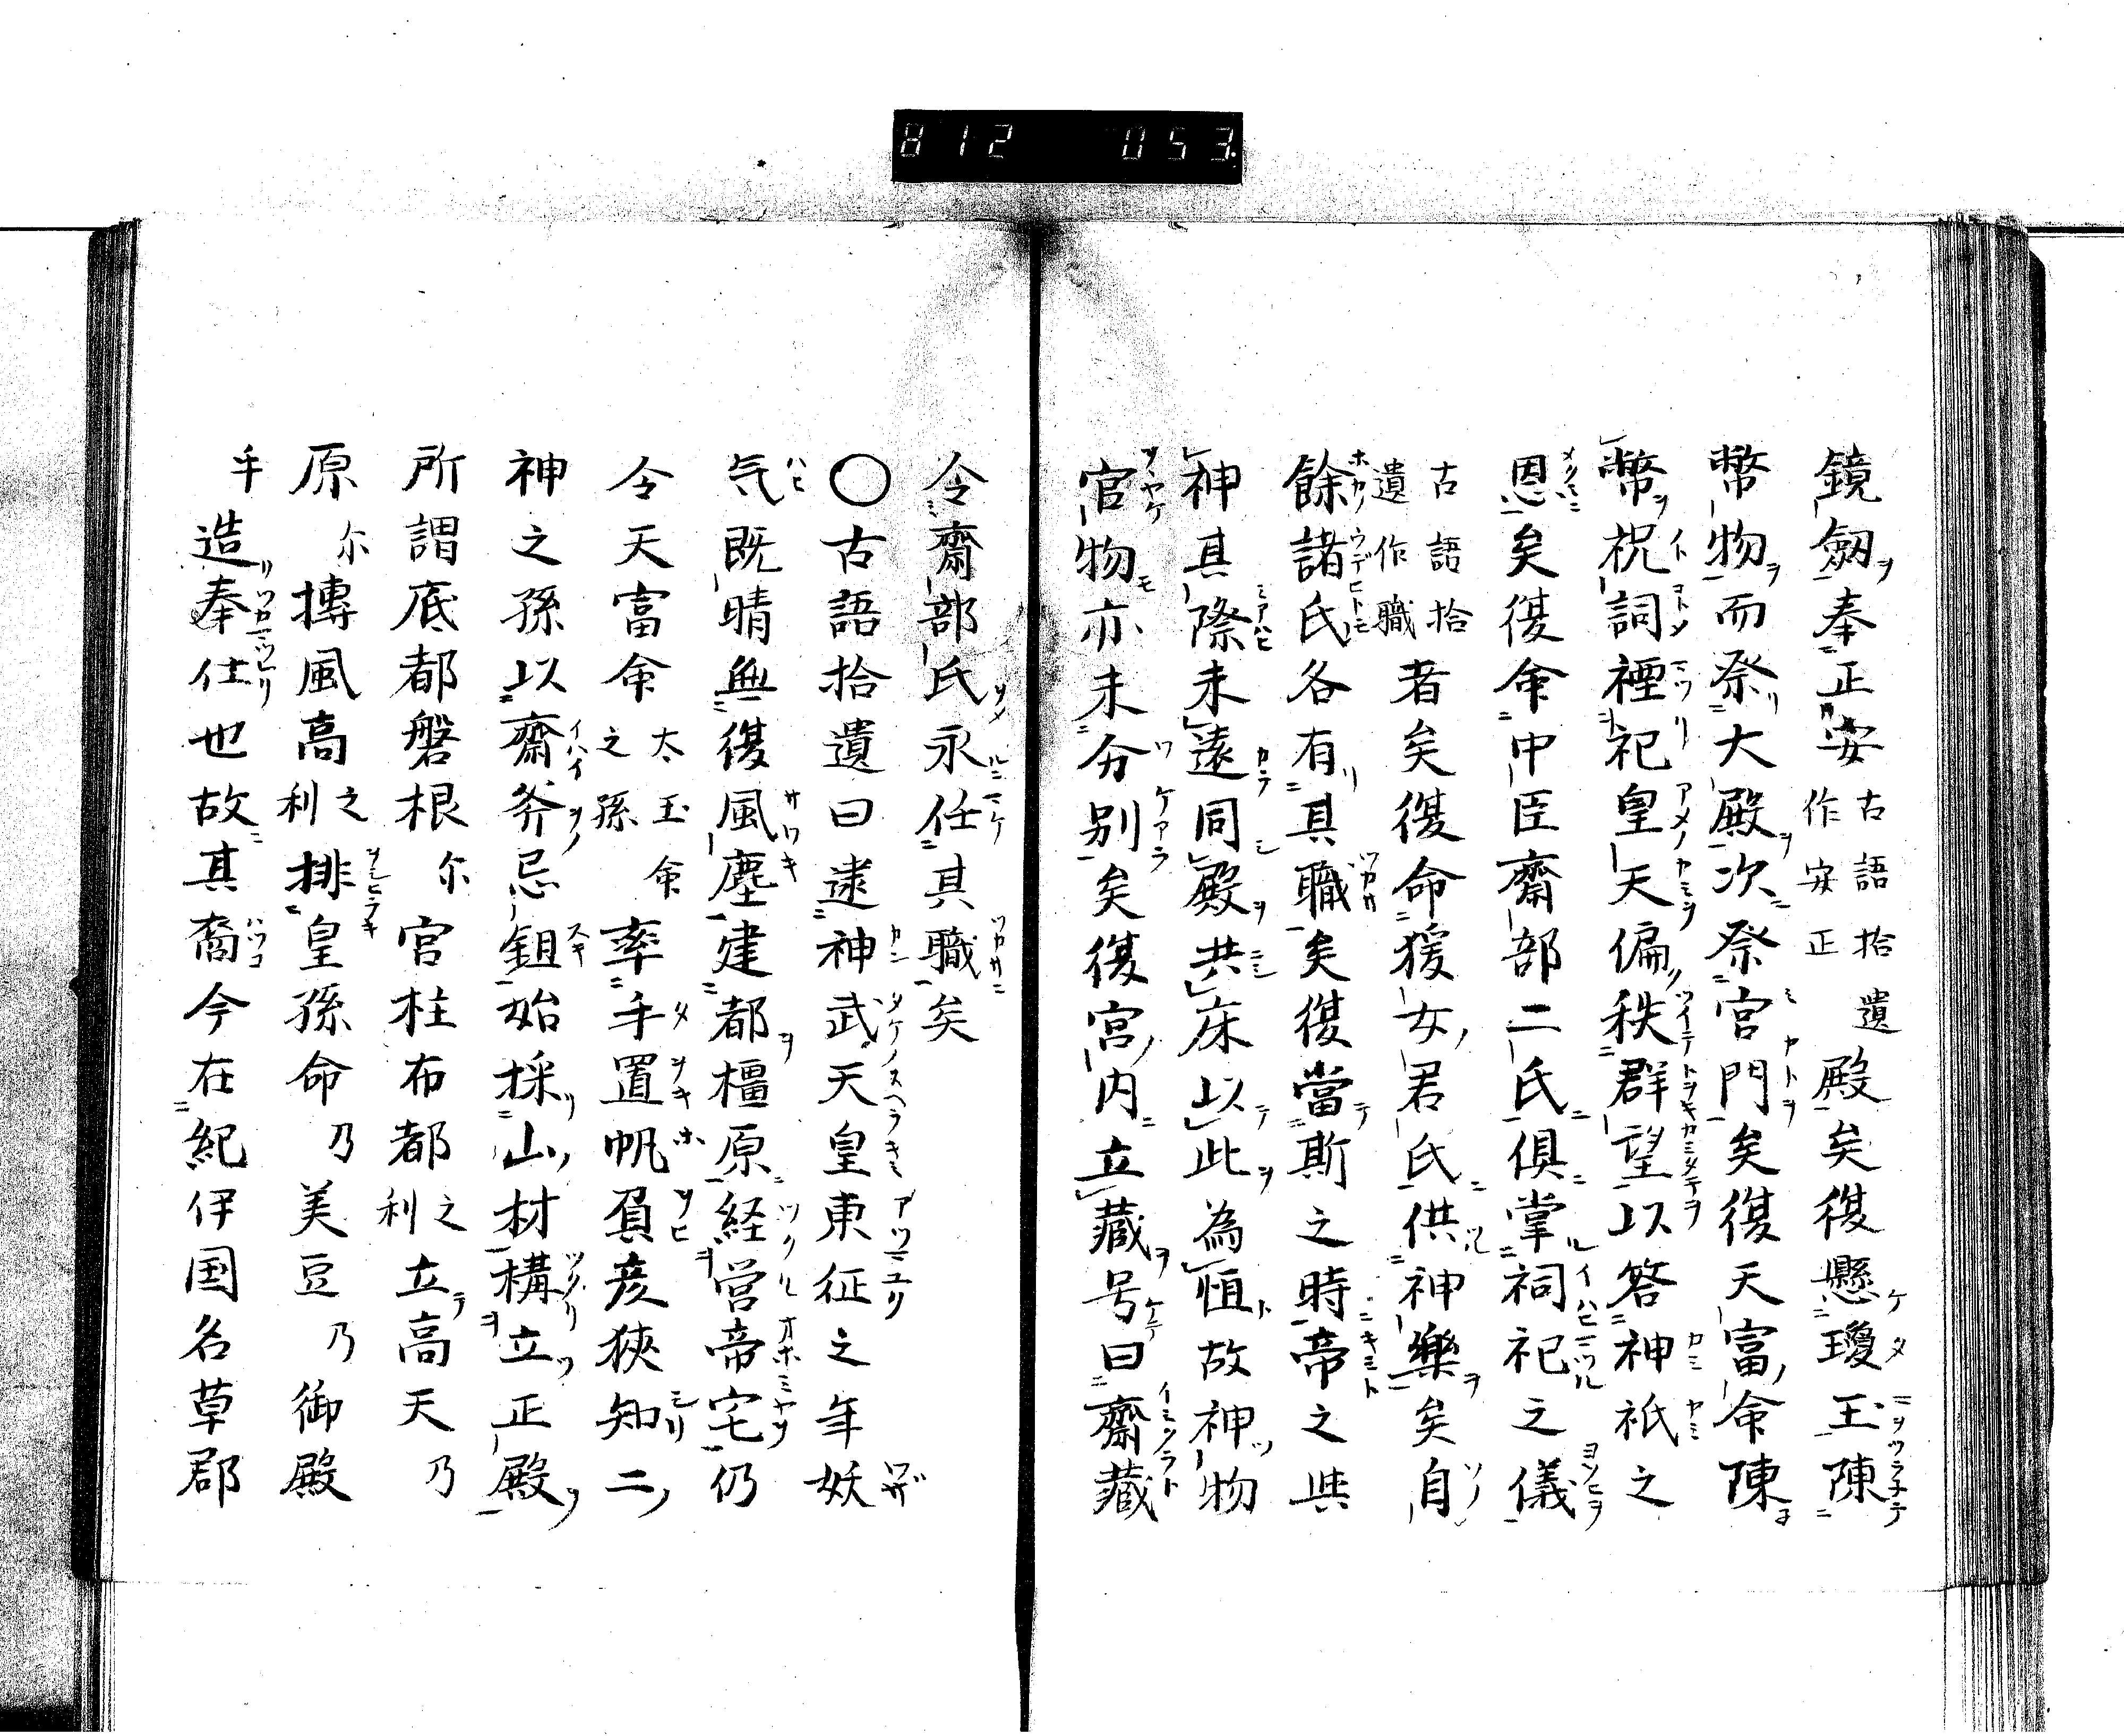 812 053
鏡劔奉正安古語拾遺作安正殿矣復懸瓊玉陳
幣物而祭大殿次祭宮門矣復天富命陳
幣祝詞禋祀皇天偏秩群望以答神祇之
恩矣復命中臣齋部二氏倶掌祠祀之儀
古語拾遺作職者矣復命猨女君氏供神樂矣自
餘諸氏各有其職矣復當斯之時帝之與
神其際未遠同殿共床以此為恒故神物
官物亦未分別矣復宮内立藏号曰齋藏
令齋部氏永任其職矣
〇古語拾遺曰逮神武天皇東征之年妖
气既晴無復風塵建都橿原経営帝宅仍
令天富命太玉命之孫率手置帆負彦狹知二
神之孫以齋斧忌鉏始採山材構立正殿
所謂底都磐根尓宮柱布都之利立高天乃
原尓搏風高之利排皇孫命乃美豆乃御殿
乎造奉仕也故其裔今在紀伊国名草郡